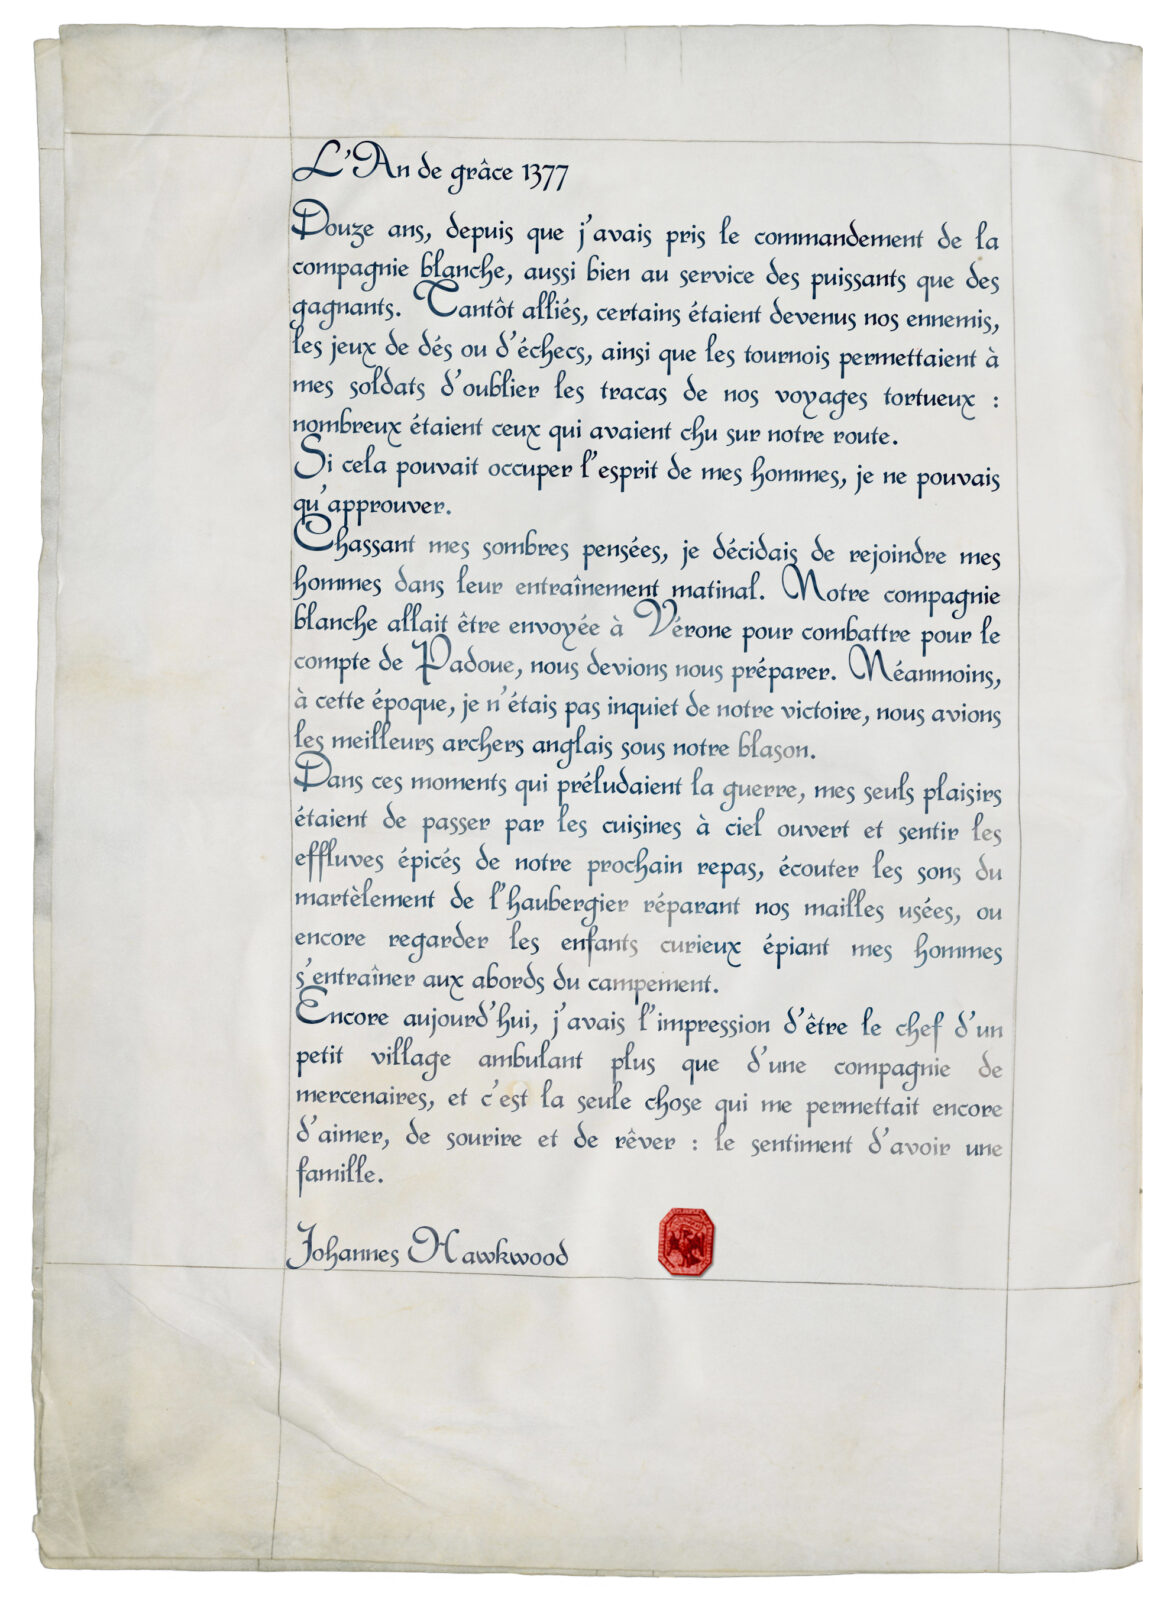 L'An de grâce 1377
Douze ans, depuis que j'avais pris le commandement de la
compagnie blanche, aussi bien au service des puissants que des
gagnants. Tantôt alliés, certains étaient devenus nos ennemis,
les jeux de dés ou d'échecs, ainsi que les tournois permettaient à
mes soldats d'oublier les tracas de nos voyages tortueux :
nombreux étaient ceux qui avaient chu sur notre route.
Si cela pouvait occuper l'esprit de mes hommes, je ne pouvais
qu'approuver.
Chassant mes sombres pensées, je décidais de rejoindre mes
hommes dans leur entraînement matinal. Notre compagnie
blanche allait être envoyée à Vérone pour combattre pour le
compte de Padoue, nous devions nous préparer. Néanmoins,
à cette époque, je n'étais pas inquiet de notre victoire, nous avions
les meilleurs archers anglais sous notre blason.
Dans ces moments qui préludaient la guerre, mes seuls plaisirs
étaient de passer par les cuisines à ciel ouvert et sentir les
effluves épicés de notre prochain repas, écouter les sons du
martèlement de l'haubergier réparant nos mailles usées, ou
encore regarder les enfants curieux épiant mes hommes
s'entraîner aux abords du campement.
Encore aujourd'hui, j'avais l'impression d'être le chef d'un
petit village ambulant plus que d'une compagnie de
mercenaires, et c'est la seule chose qui me permettait encore
d'aimer, de sourire et de rêver : le sentiment d'avoir une
famille.
Johannes Hawkwood